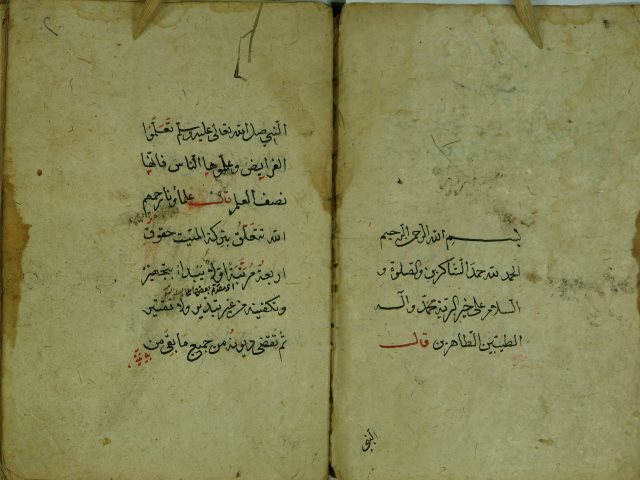 بسم الله الرحمن الرحيم
الحمد لله حمد الشاكرين والصلوة و
السلام على خير البرية محمد وآله
الطيبين الطاهرين قال
النبي
النبي صلى الله تعالى عليه وسلم تعلموا
الفرايض وعلموها الناس فانها
نصف العلم قال علماؤنا رحمهم
الله تتعلق بتركة الميت حقوق
اربعة مرتبة اولا يبتداء بتجهيزه
وتكفينه من غير تبذير ولا تقتير
ثم تقضى ديونه من جميع ما بقى من